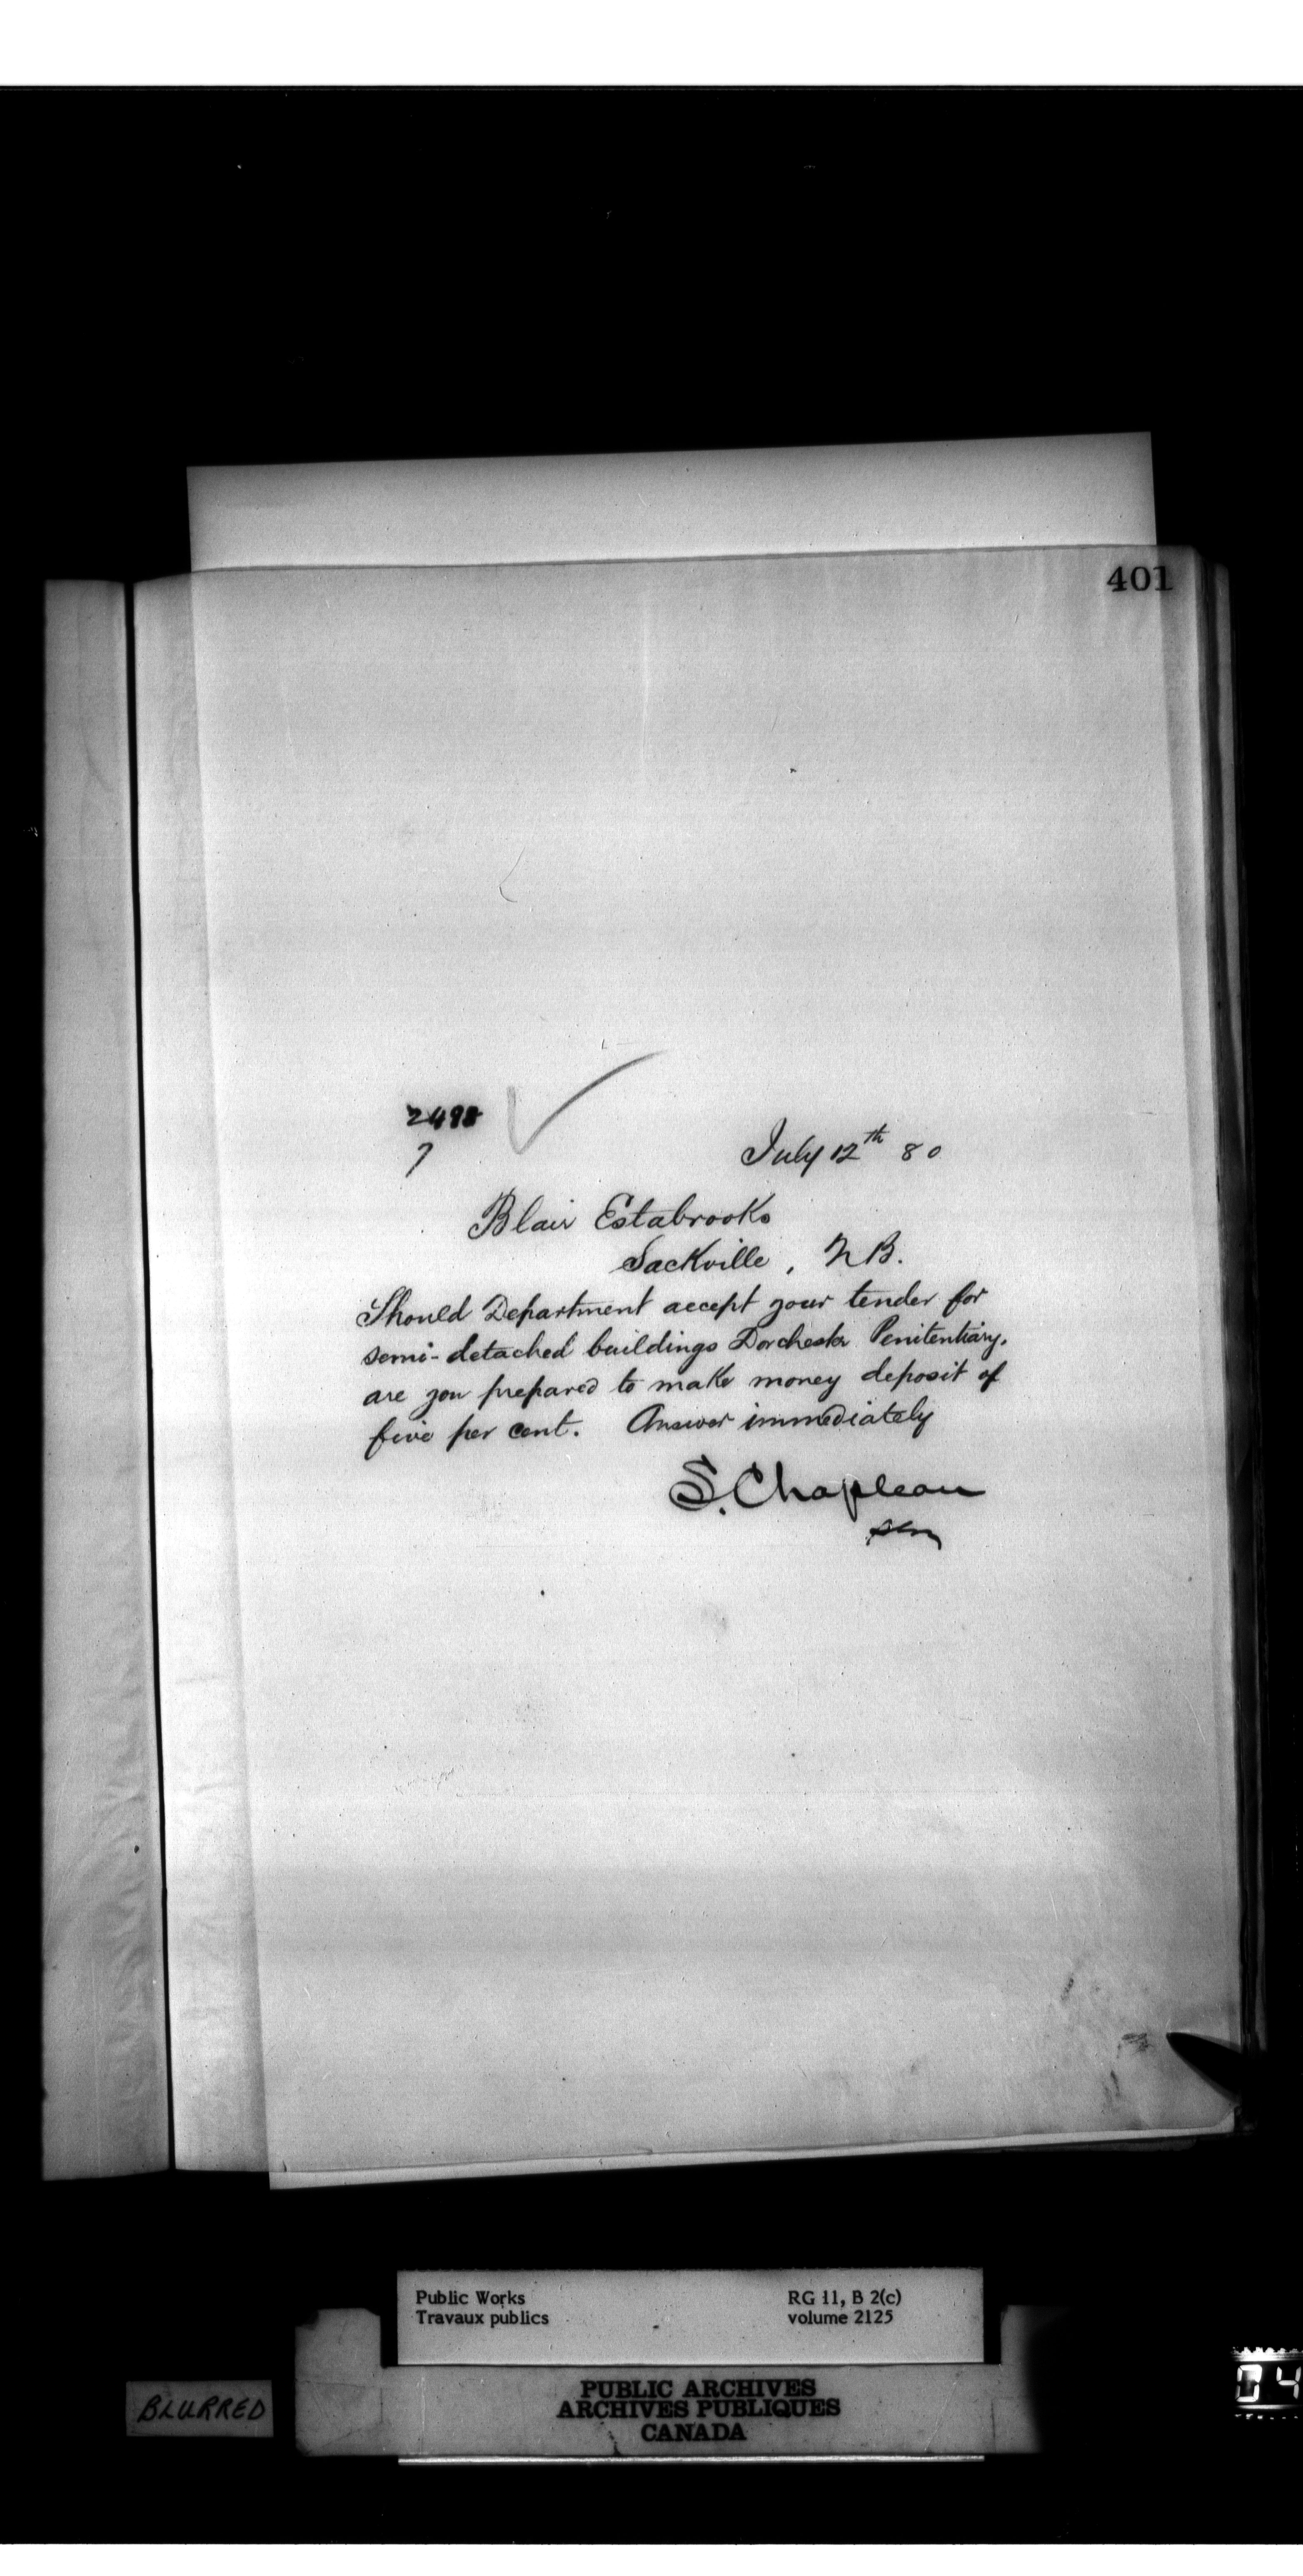 401
2498
7
July 12th 80
Blair Estabrooks
Sackville, N.B.
Should Department accept your tender for
semi-detached buildings Dorchester Penitentiary,
are you prepared to make money deposit of
five per cent. Answer immediately
S. Chapleau
Public Works
Travaux publics
RG 11, B 2(c)
volume 2125
BLURRED
PUBLIC ARCHIVES
ARCHIVES PUBLIQUES
CANADA
04